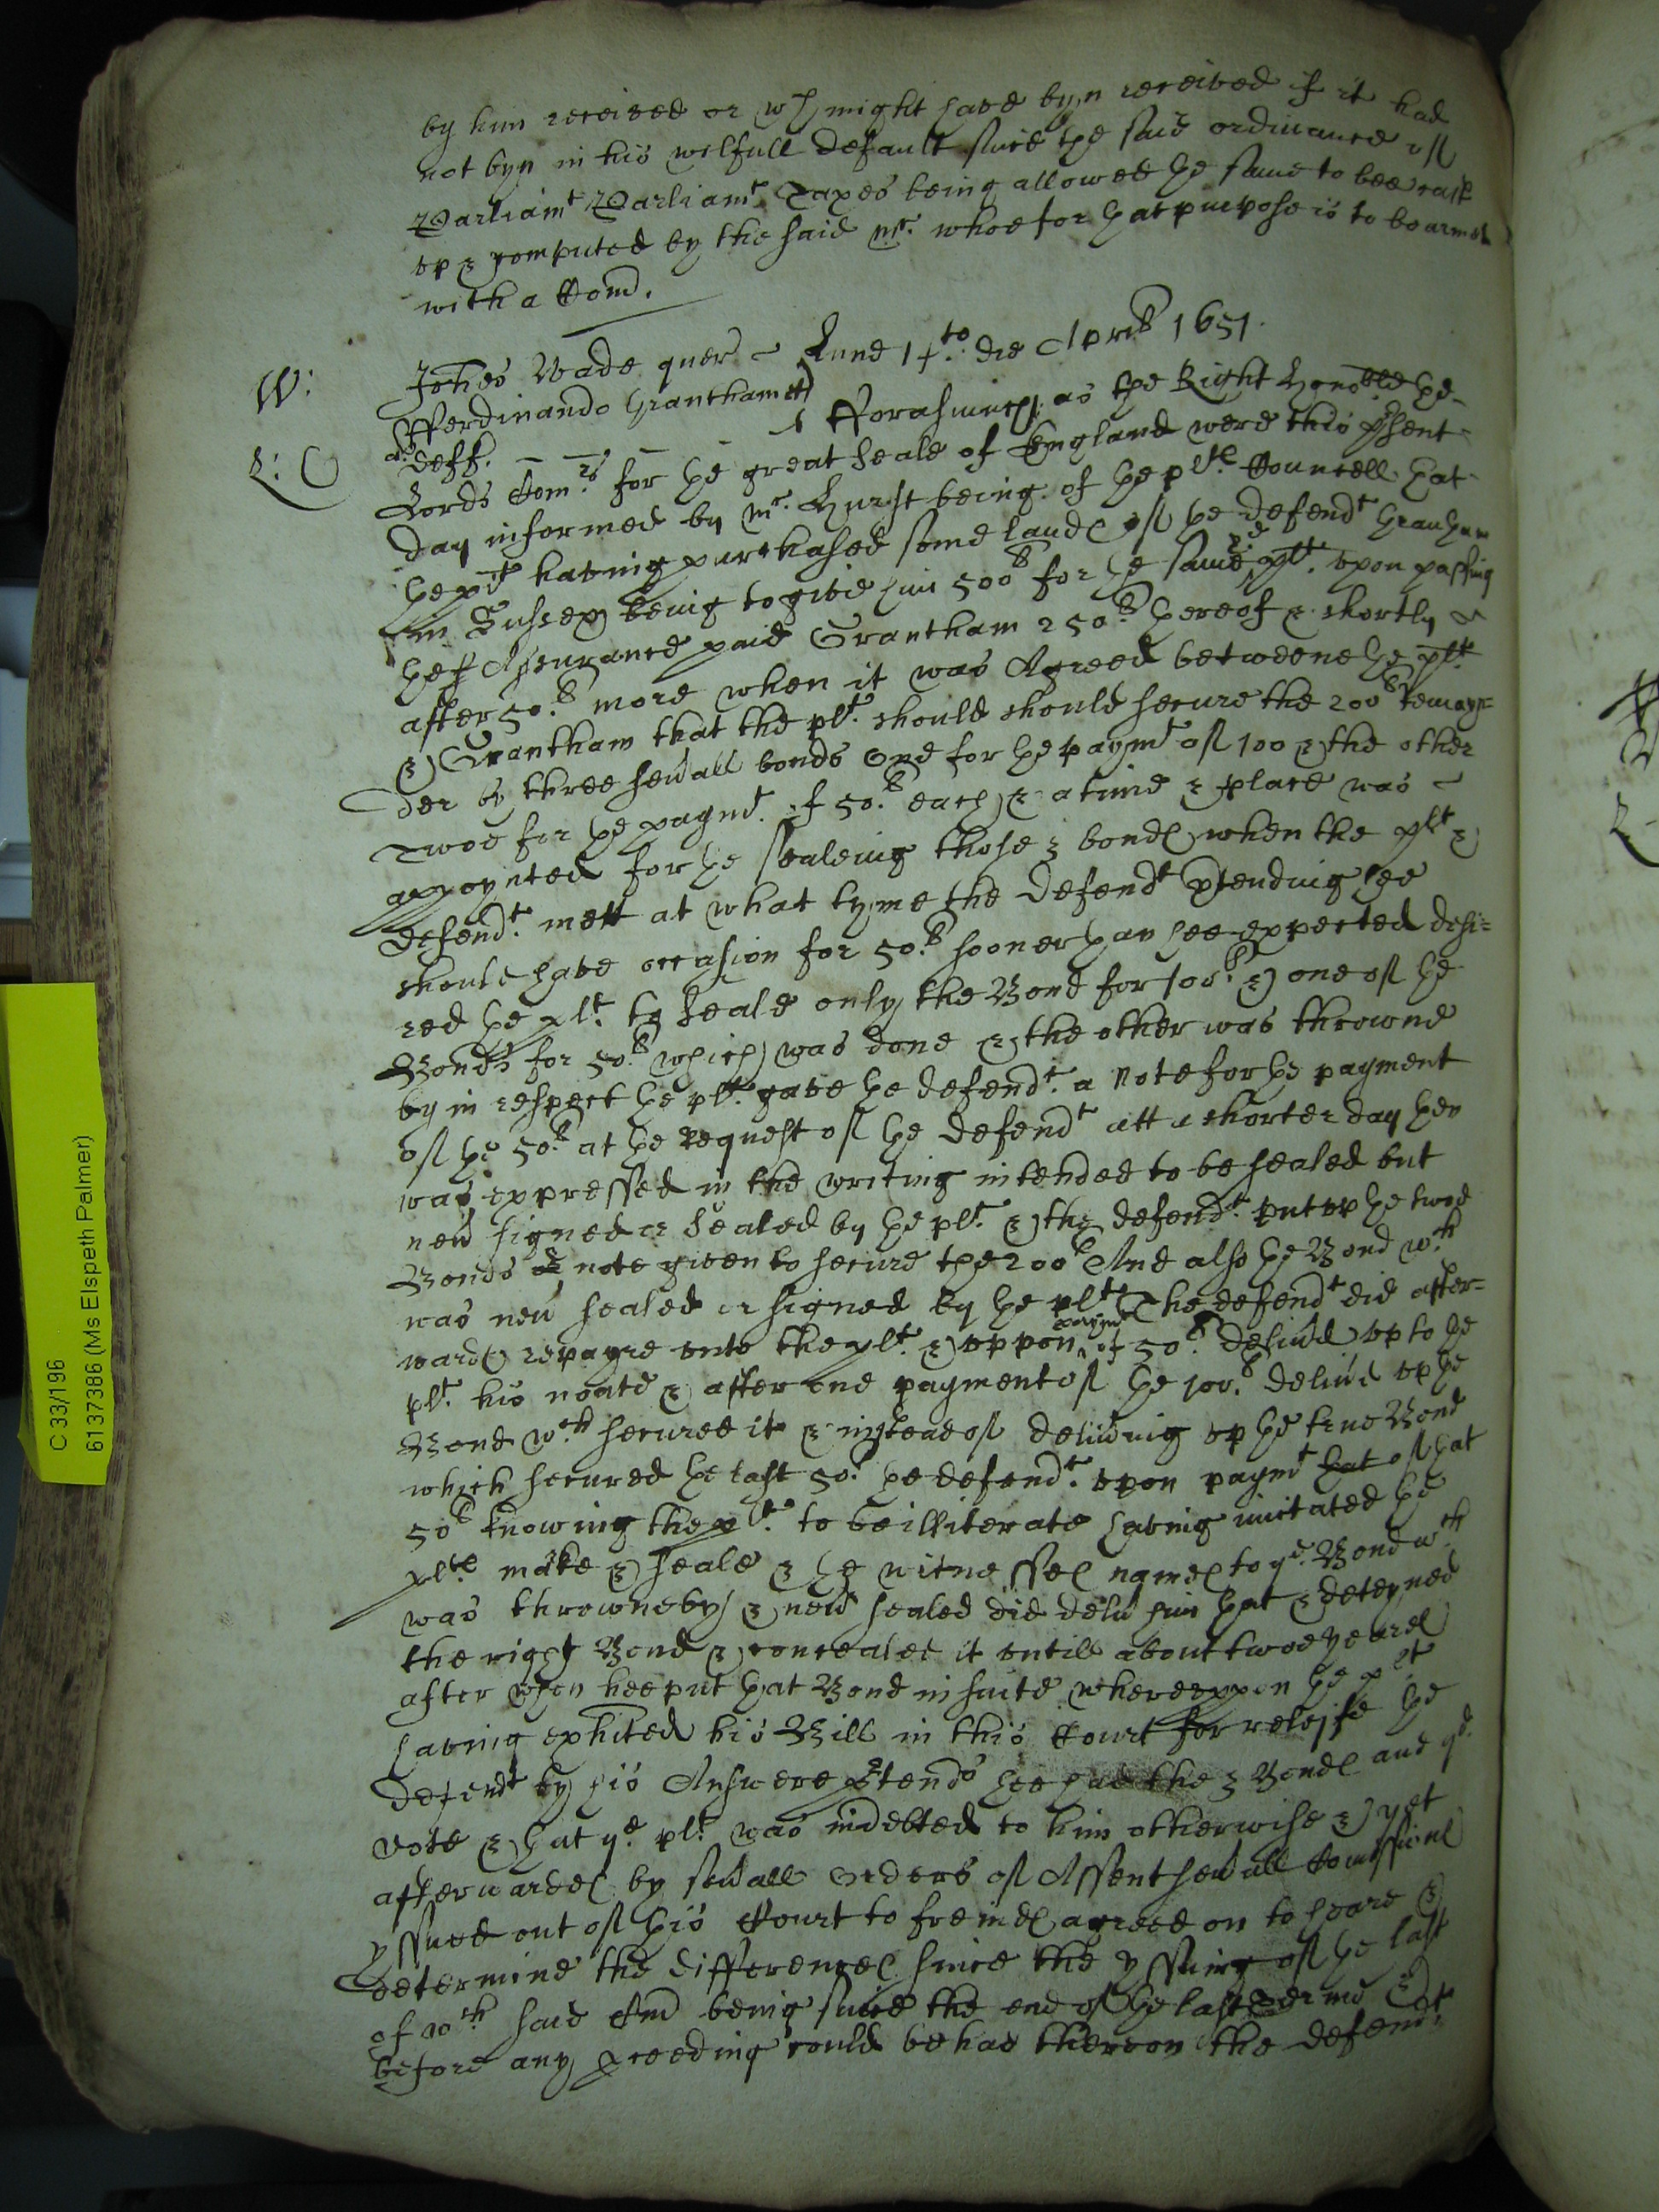 by him received or wch might have byn received if it had
not byn in his wilfull default since the said ordinance of
Parliamt Parliamt Taxes being allowed the same to bee cast
up & computed by the said Mr. whoe for that purpose is to be armed
with a Com̃.
W:
L: C
Johes Wade quer Lune 14to die Aprilis 1651.
Fferdinando Grantham et
al deff. Fforasmuch as the Right Honoble the
Lords Comrs for the great Seale of England were this psent
day informed by Mr. Hurst being of the plts Councell that
the plt having purchased some lands of the defendt Grantham
in Sussex being to give him 500l for the same ye plt. upon passing
the Assurance paid Grantham 250l thereof & shortly
after 50l more when it was Agreed betweene the plt
& Grantham that the plt. should should secure the 200l remayn=
der by three sevall bonds one for the paymt of 100 & the other
Twoe for the paymt. of 50l each & a time & place was
appoynted for the sealeing those 3 bonds when the plt &
defendt. mett at what tyme the defendt ptending hee
should have occasion for 50l sooner than hee expected desi=
red the plt. to seale only the Bond for 100l & one of the
Bonds for 50l which was done & the other was throwne
by in respect the plt. gave the defendt. a Note for the payment
of the 50l at the request of the defendt att a shorter day then
was expressed in the writing intended to be sealed but
nev signed or sealed by the plt. & the defendt. put up the twoe
Bonds & note given to secure the 200l And also the Bond wch
was nev sealed or signed by the plt & the defendt did after=
wards repayre unto the plt. & uppon paymt of 50l delivd up to the
plt. his noate & after one payment of the 100l delivd up the
Bond wch secured it & instead of delivring up the true Bond
which secured the last 50l the defendt. upon paymt that of that
50l knowing the plt. to be illiterate having imitated the
plts marke & seale & the witnesses names to ye Bond wch
was throwne by & nev sealed did delivr him that & deteyned
the right Bond & concealed it untill about twoe yeares
after when hee put that Bond in suite whereuppon the plt
having exhited his Bill in this Court for releife the
Defendt by his Answere ptends hee had the 3 Bonds and ye
note & that ye plt was indebted to him otherwise & yet
afterwardes by sevall Orders of Assent sevall Comissions
yssued out of this Court to freinds agreed on to heare &
determine the differences since the yssuing of the last
of wch said Com̃ being since the end of the last Terme &
before any proceeding could be had thereon the defendt.
C 33/196
6137386 (Ms Elspeth Palmer)